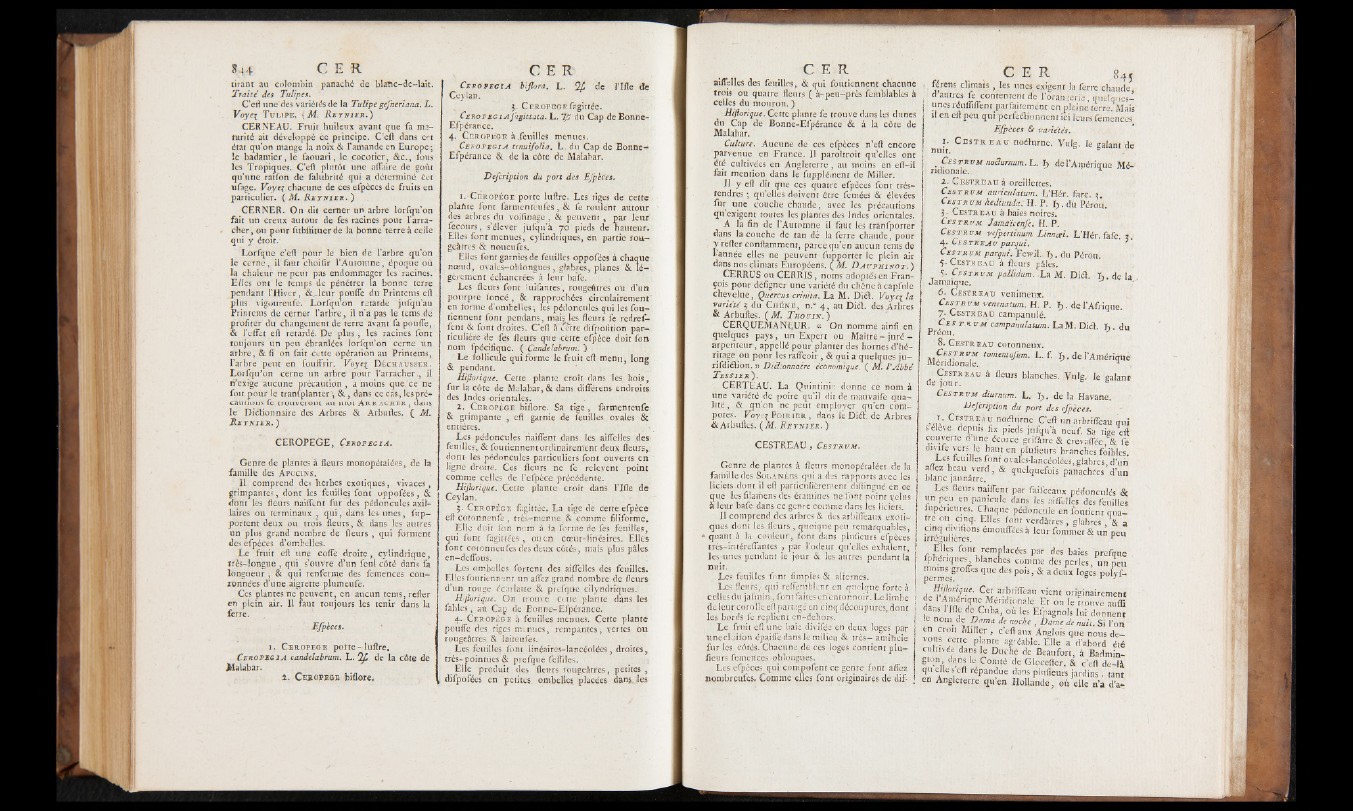 844 C E R
tirant au colombin panaché de blanc-de-lait.
Traité des Tulipes.
C'eſt une des variétés de la Tulipe geſneriana. L.
Voyez TULIPE. (M. REYNIER.)
CERNEAU. Fruit huileux avant que ſa ma-
turité ait développé ce principe. C'eſt dans cet
état qu'on mange la noix & l'amande en Europe;
le badamier, le faouari, le cocotier, &c., ſous
les Tropiques. C'eſt plutôt une affaire de goût
qu'une raiſon de ſalubrité qui a déterminé cet
uſage. Voyez chacune de ces eſpèces de fruits en
particulier. (M. REYNIER.)
CERNER. On dit cerner un arbre lorſqu'on
fait un creux autour de ſes racines pour l'arra-
cher, ou pour ſubſtituer de la bonne terre à celle
qui y étoit.
Lorſque c'eſt pour le bien de l'arbre qu'on
le cerne, il faut choiſir l'Automne, époque où
la chaleur ne peut pas endommager les racines.
Elles ont le temps de pénétrer la bonne terre
pendant l'Hiver, & leur pouſſe du Printems eſt
plus vigoureuſe. Lorſqu'on retarde juſqu'au
Printems de cerner l'arbre, il n'a pas le tems de
profiter du changement de terre avant ſa pouſſe,
& l'effet eſt retardé. De plus, les racines ſont
toujours un peu ébranlées lorſqu'on cerne un
arbre, & ſi on fait cette opération au Printems,
l'arbre peut en ſouffrir. Voyez DÉCHAUSSER.
Lorſqu'on cerne un arbre pour l'arracher, il
n'exige aucune précaution, à moins que ce ne
ſoit pour le tranſplanter; &, dans ce cas, les pré-
cautions ſe trouveront au mot ARRACHER, dans
le Dictionnaire des Arbres & Arbuſtes. (M.
REYNIER.)
CEROPEGE, CEROPEGIA.
Genre de plantes à fleurs monopétalées, de la
famille des APOCINS.
Il comprend des herbes exotiques, vivaces,
grimpantes, dont les feuilles ſont oppoſées, &
dont les fleurs naiſſent ſur des pédoncules axil-
laires ou terminaux, qui, dans les unes, ſup-
portent deux ou trois fleurs, & dans les autres
un plus grand nombre de fleurs, qui forment
des eſpèces d'ombelles.
Le fruit eſt une coſſe droite, cylindrique,
très-longue, qui s'ouvre d'un ſeul côté dans ſa
longueur, & qui renferme des ſemences cou-
ronnées d'une aigrette plumeuſe.
Ces plantes ne peuvent, en aucun tems, reſter
en plein air. Il faut toujours les tenir dans la
ſerre.
Eſpèces.
1. CEROPEGE porte-luſtre.
CEROPEGIA candelabrum. L. ♃ de la côte de
Malabar.
2. CEROPEGE biflore.
C E R
CEROPEGIA biflora. L. ♃ de l'Iſle de
Ceylan.
3. CEROPEGE ſagittée.
CEROPEGIA ſagittata. L. ♄ du Cap de Bonne-
Eſpérance.
4. CEROPEGE à feuilles menues.
CEROPEGIA tenuifolia. L. du Cap de Bonne-
Eſpérance & de la côte de Malabar.
Deſcription du port des Eſpèces.
1. CEROPEGE porte luſtre. Les tiges de cette
plante ſont ſarmenteuſes, & ſe roulent autour
des arbres du voiſinage, & peuvent, par leur
ſecours, s'élever juſqu'à 70 pieds de hauteur.
Elles ſont menues, cylindriques, en partie rou-
geâtres & noueuſes.
Elles ſont garnies de feuilles oppoſées à chaque
nœud, ovales-oblongues, glabres, planes & lé-
gèrement échancrées à leur baſe.
Les fleurs ſont luiſantes, rougeâtres ou d'un
pourpre foncé, & rapprochées circulairement
en forme d'ombelles, les pédoncules qui les ſou-
tiennent ſont pendans, mais les fleurs ſe redreſ-
ſent & ſont droites. C'eſt à cette diſpoſition par-
ticulière de ſes fleurs que cette eſpèce doit ſon
nom ſpécifique. (Candelabrum.)
Le follicule qui forme le fruit eſt menu, long
& pendant.
Hiſtorique. Cette plante croît dans les bois,
ſur la côte de Malabar, & dans différens endroits
des Indes orientales.
2. CEROPEGE biflore. Sa tige, ſarmenteuſe
& grimpante, eſt garnie de feuilles ovales &
entières.
Les pédoncules naiſſent dans les aiſſelles des
feuilles, & ſoutiennent ordinairement deux fleurs,
dont les pédoncules particuliers ſont ouverts en
ligne droite. Ces fleurs ne ſe relevent point
comme celles de l'eſpèce précédente.
Hiſtorique. Cette plante croît dans l'Iſle de
Ceylan.
3. CEROPÈGE ſagittée. La tige de cette eſpèce
eſt cotonneuſe, très-menue & comme filiforme.
Elle doit ſon nom à la forme de ſes feuilles,
qui ſont ſagittées, ou en cœur-linéaires. Elles
ſont cotonneuſes des deux côtés, mais plus pâles
en-deſſous.
Les ombelles ſortent des aiſſelles des feuilles.
Elles ſoutiennent un aſſez grand nombre de fleurs
d'un rouge écarlatte & preſque cilyndriques.
Hiſtorique. On trouve cette plante dans les
ſables, au Cap de Bonne-Eſpérance.
4. CEROPÈGE à feuilles menues. Cette plante
pouſſe des tiges menues, rempantes, vertes ou
rougeâtres & laiteuſes.
Les feuilles ſont linéaires-lancéolées, droites,
très-pointues & preſque ſeſſiles.
Elle produit des fleurs rougeâtres, petites,
diſpoſées en petites ombelles placées dans les
C E R
aiſſelles des feuilles, & qui ſoutiennent chacune
trois ou quatre fleurs (à-peu-près ſemblables à
celles du mouron.)
Hiſtorique. Cette plante ſe trouve dans les dunes
du Cap de Bonne-Eſpérance & à la côte de
Malabar.
Culture. Aucune de ces eſpèces n'eſt encore
parvenue en France. Il paroîtroit qu'elles ont
été cultivées en Angleterre, au moins en eſt-il
fait mention dans le ſupplément de Miller.
Il y eſt dit que ces quatre eſpèces ſont très-
tendres; qu'elles doivent être ſemées & élevées
ſur une couche chaude, avec les précautions
qu'exigent toutes les plantes des Indes orientales.
A la fin de l'Automne il faut les tranſporter
dans la couche de tan de la ſerre chaude, pour
y reſter conſtamment, parce qu'en aucun tems de
l'année elles ne peuvent ſupporter le plein air
dans nos climats Européens. (M. DAUPHINOT.)
CERRUS ou CERRIS, noms adoptés en Fran-
çois pour déſigner une variété du chêne à capſule
chevelue, Quercus crinita. La M. Dict. Voyez la
variété 3 du CHÊNE, n.° 4, au Dict. des Arbres
& Arbuſtes. (M. THOUIN.)
CERQUEMANEUR. « On nomme ainſi en
quelques pays, un Expert ou Maître-juré-
arpenteur, appellé pour planter des bornes d'hé-
ritage ou pour les raſſeoir, & qui a quelques ju-
riſdiction. » Dictionnaire économique. (M. l'Abbé
TESSIER.)
CERTEAU. La Quintinie donne ce nom à
une variété de poire qu'il dit de mauvaiſe qua-
lité, & qu'on ne peut employer qu'en com-
potes. Voyez POIRIER, dans le Dict. de Arbres
& Arbuſtes. (M. REYNIER.)
CESTREAU, CESTRUM.
Genre de plantes à fleurs monopétalées de la
famille des SOLANÉES qui a des rapports avec les
liciets dont il eſt particulièrement diſtingué en ce
que les filamens des étamines ne ſont point velus
à leur baſe dans ce genre comme dans les liciets.
Il comprend des arbres & des arbriſſeaux exoti-
ques dont les fleurs, quoique peu remarquables,
quant à la couleur, ſont dans pluſieurs eſpèces
très-intéreſſantes, par l'odeur qu'elles exhalent,
les unes pendant le jour & les autres pendant la
nuit.
Les feuilles ſont ſimples & alternes.
Les fleurs, qui reſſemblent en quelque ſorte à
celles du jaſmin, ſont faites en entonnoir. Le limbe
de leur corolle eſt partagé en cinq découpures, dont
les bords ſe replient en-dehors.
Le fruit eſt une baie diviſée en deux loges par
une cloiſon épaiſſe dans le milieu & très-amincie
ſur les côtés. Chacune de ces loges contient plu-
ſieurs ſemences oblongues.
Les eſpèces qui compoſent ce genre ſont aſſez
nombreuſes. Comme elles ſont originaires de dif-
C E R 845
férens climats, les unes exigent la ſerre chaude,
d'autres ſe contentent de l'orangerie, quelques-
unes réuſſiſſent parfaitement en pleine terre. Mais
il en eſt peu qui perfectionnent ici leurs ſemences.
Eſpèces & variétés.
1. CESTREAU nocturne. Vulg. le galant de
nuit.
CESTRUM nocturnum. L. ♄ de l'Amérique Mé-
ridionale.
2. CESTREAU à oreillettes.
CESTRUM auriculatum. L'Hér. faſc. 3.
CESTRUM hediunda. H. P. ♄. du Pérou.
3. CESTREAU à baies noires.
CESTRUM Jamaïcenſe. H. P.
CESTRUM veſpertinum Linnæi. L'Hér. faſc. 3.
4. CESTREAU parqui.
CESTRUM parqui. Fewil. ♄. du Pérou.
5. CESTREAU à fleurs pâles.
5. CESTRUM pallidum. La M. Dict. ♄. de la
Jamaïque.
6. CESTREAU venimeux.
CESTRUM venenatum. H. P. ♄. de l'Afrique.
7. CESTREAU campanulé.
CESTRUM campanulatum. La M. Dict. ♄. du
Préou.
8. CESTREAU cotonneux.
CESTRUM tomentoſum. L. f. ♄. de l'Amérique
Méridionale.
CESTREAU à fleurs blanches. Vulg. le galant
de jour.
CESTRUM diurnum. L. ♄. de la Havane.
Deſcription du port des eſpèces.
1. CESTREAU nocturne. C'eſt un arbriſſeau qui
s'élève depuis ſix pieds juſqu'à neuf. Sa tige eſt
couverte d'une écorce griſâtre & crevaſſée, & ſe
diviſe vers le haut en pluſieurs branches foibles.
Les feuilles ſont ovales-lancéolées, glabres, d'un
aſſez beau verd, & quelquefois panachées d'un
blanc jaunâtre.
Les fleurs naiſſent par faiſceaux pédonculés &
un peu en panicule dans les aiſſelles des feuilles
ſupérieures. Chaque pédoncule en ſoutient qua-
tre ou cinq. Elles ſont verdâtres, glabres, & a
cinq diviſions émouſſées à leur ſommet & un peu
irrégulières.
Elles ſont remplacées par des baies preſque
ſphériques, blanches comme des perles, un peu
moins groſſes que des pois, & a deux loges polyſ-
permes.
Hiſtorique. Cet arbriſſeau vient originairement
de l'Amérique Méridionale. Et on le trouve auſſi
dans l'Iſle de Cuba, où les Eſpagnols lui donnent
le nom de Dama de noche, Dame de nuit. Si l'on
en croit Miller, c'eſt aux Anglois que nous de-
vons cette plante agréable. Elle a d'abord été
cultivée dans le Duché de Beaufort, à Badmin-
gton, dans le Comté de Gloceſter, & c'eſt de-là
qu'elle s'eſt répandue dans pluſieurs jardins, tant
en Angleterre qu'en Hollande, où elle n'a d'a-